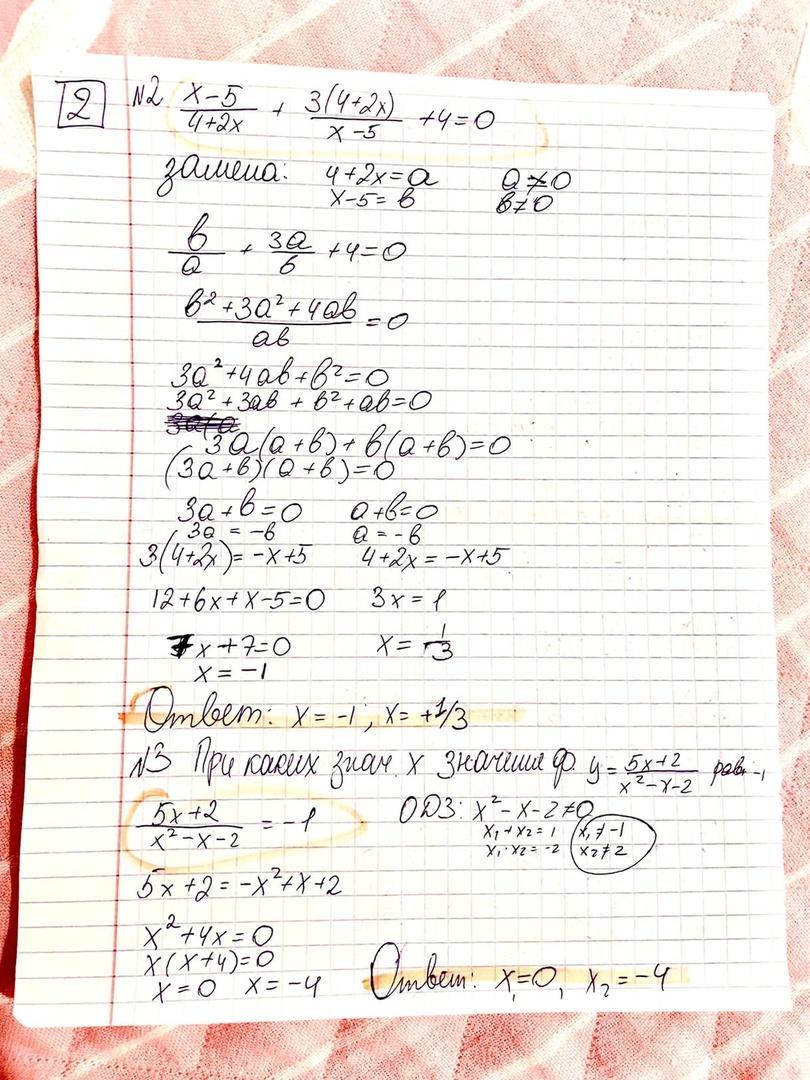 2
№2 (x-5)/(4+2x) + 3(4+2x)/(x-5) +4=0
замена: 4+2x=a a≠0
x-5=в в≠0
в/a + 3a/в +4=0
(в²+3a²+4aв)/(aв) =0
3a²+4aв+в²=0
3a²+3aв+в²+aв=0
3a(a+в)+в(a+в)=0
(3a+в)(a+в)=0
3a+в=0 a+в=0
3a=-в a=-в
3(4+2x)=-x+5 4+2x=-x+5
12+6x+x-5=0 3x=1
7x+7=0 x=1/3
x=-1
Ответ: x=-1, x=+1/3
№3 При каких знач. x значения ф. y=(5x+2)/(x²-x-2) равн -1
(5x+2)/(x²-x-2) =-1 ОДЗ: x²-x-2≠0
x₁+x₂=1 x₁≠-1
x₁·x₂=-2 x₂≠2
5x+2=-x²+x+2
x²+4x=0
x(x+4)=0
x=0 x=-4 Ответ: x₁=0, x₂=-4